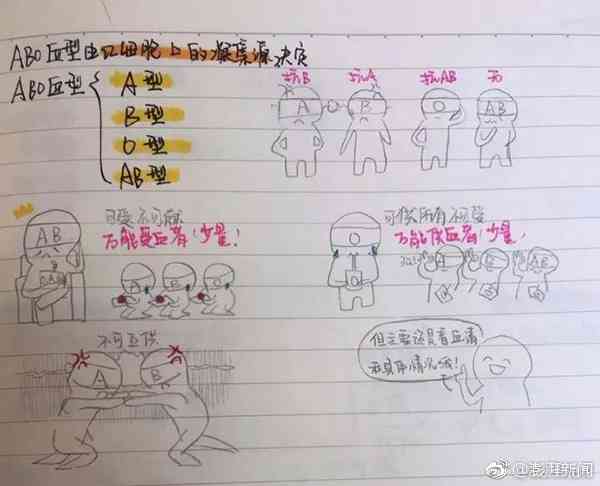 ABO血型由红细胞上的凝集源决定
ABO血型
A型
B型
O型
AB型
抗B 抗A 抗AB 无
A B O AB
可受不可供
万能受血者！少量！
AB
A B O
可供所有不可受
万能供血者！少量！
O
A B AB
不可互供
A B
但主要还是看血清
和具体情况哦！
@澎湃新闻